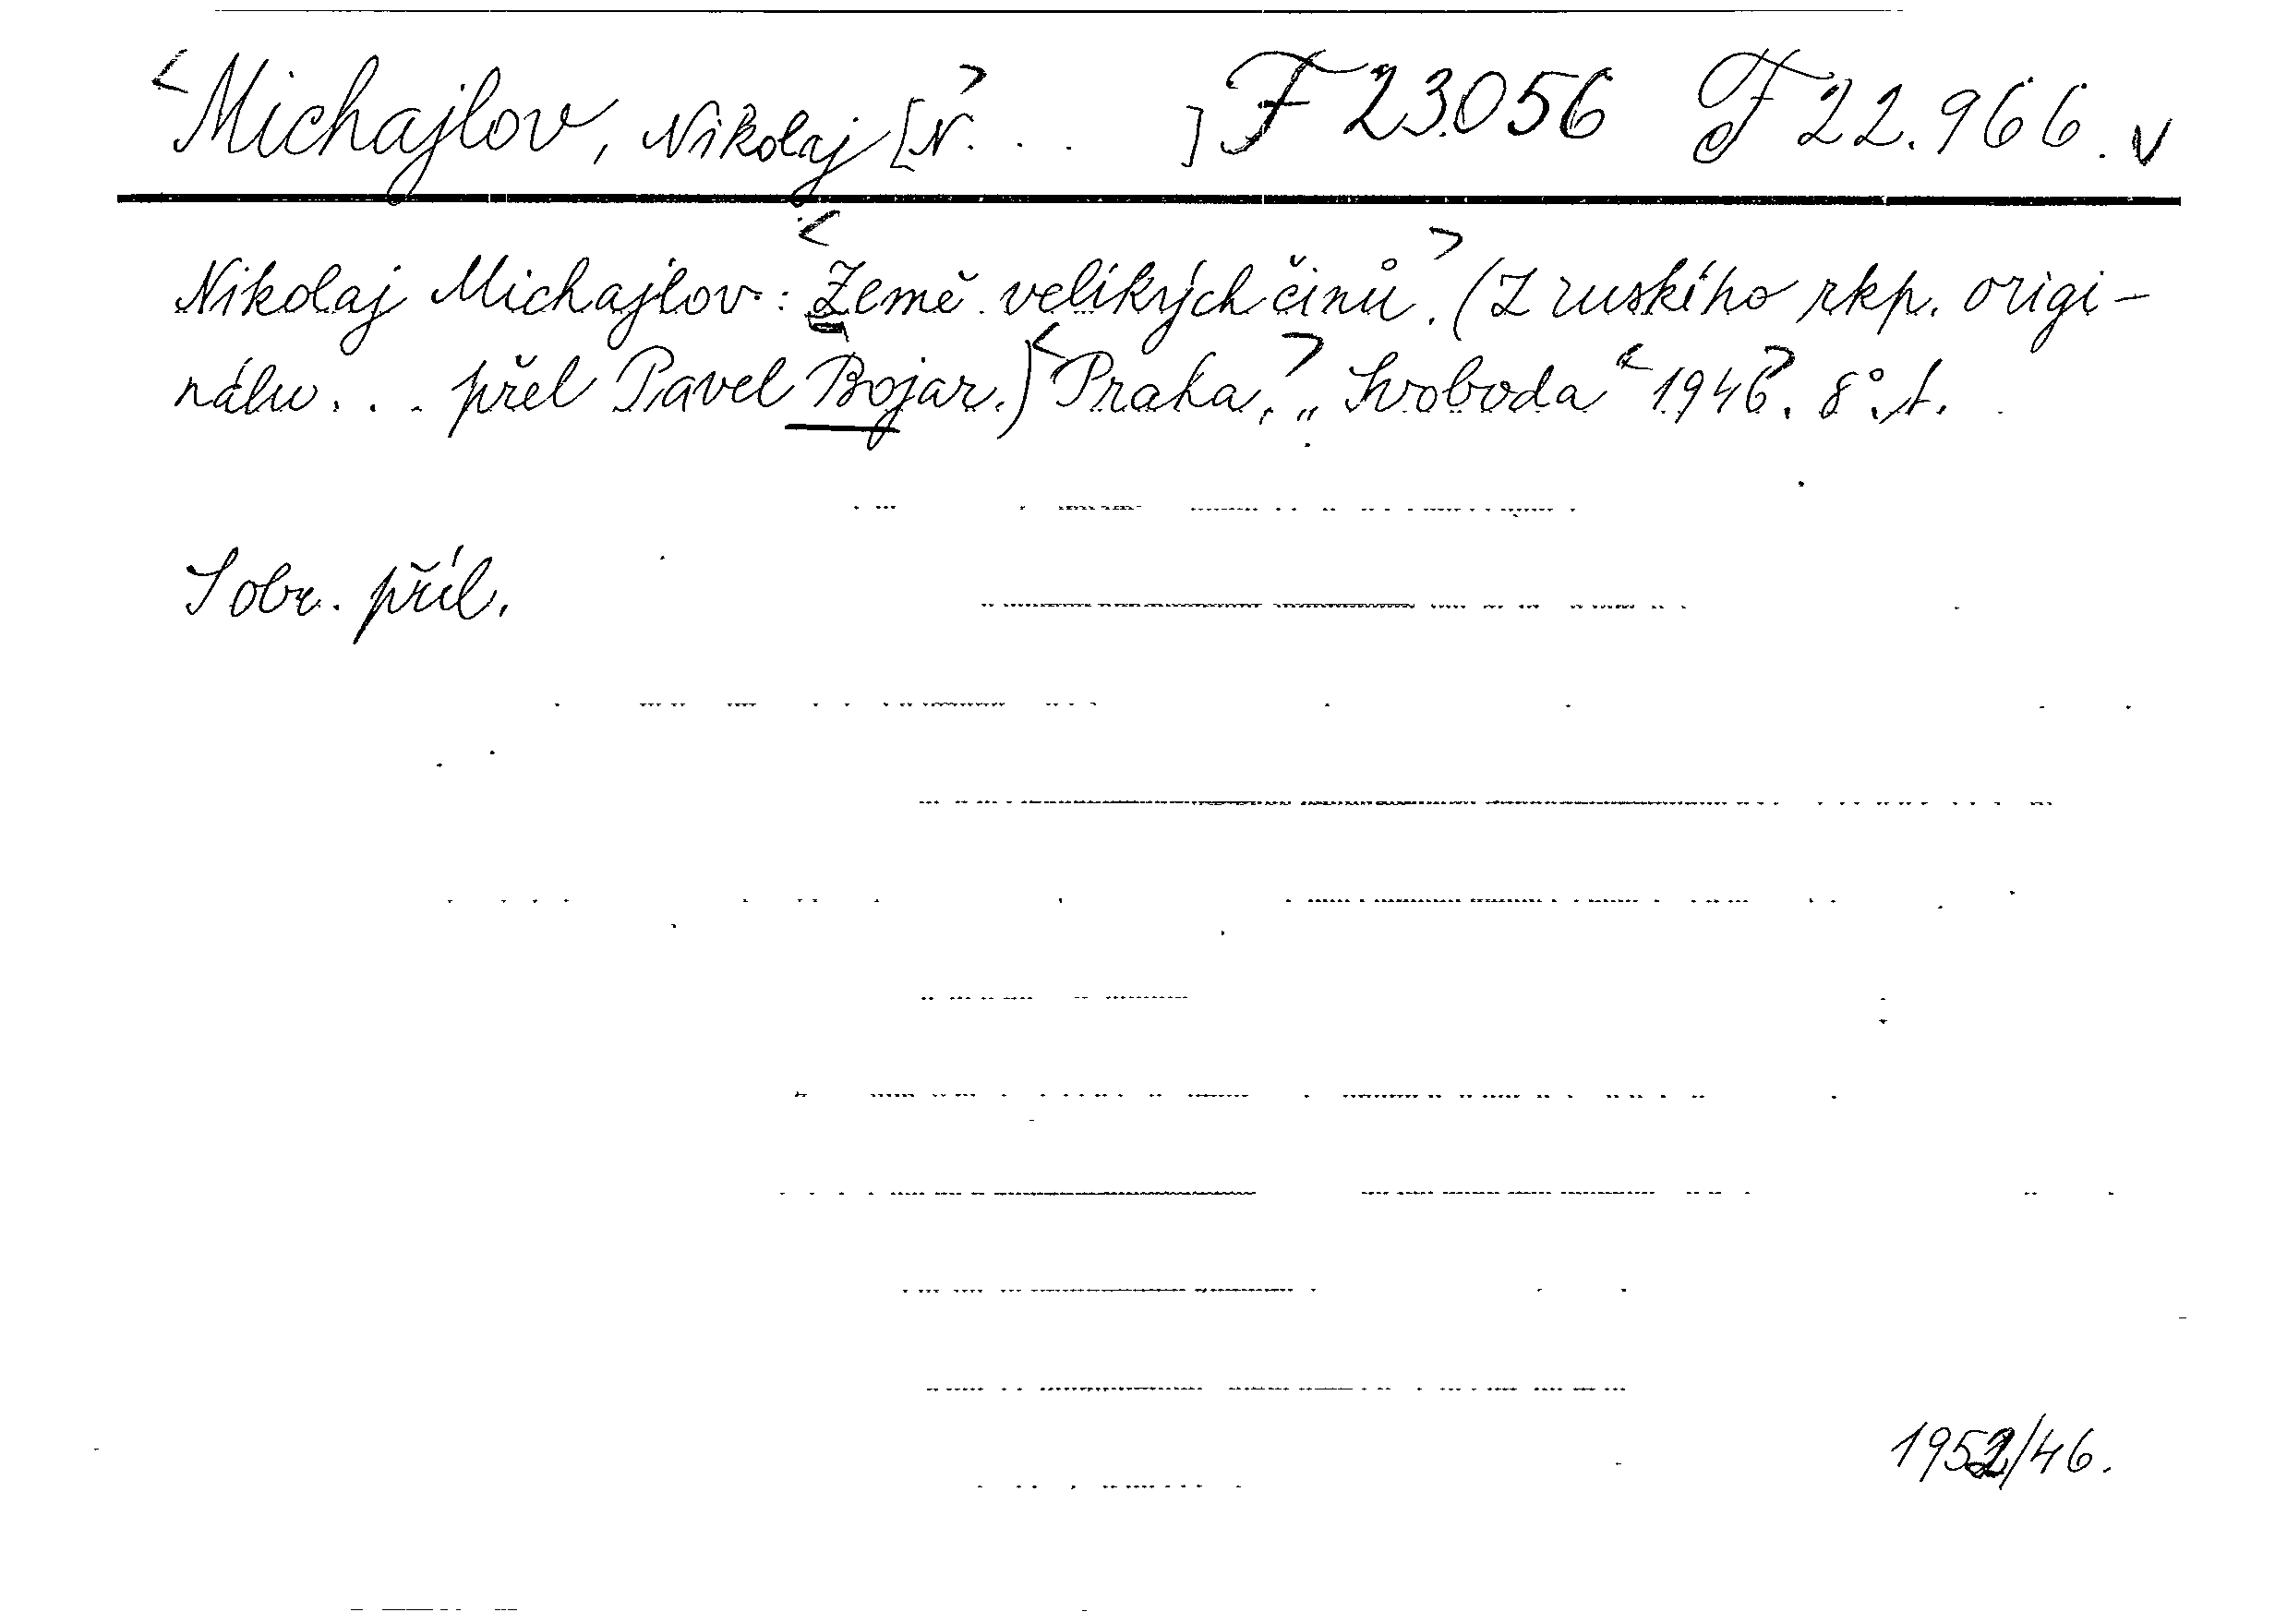 <Michajlov, Nikolaj [N.> . . ] F 23.056 F 22.966. v
Nikolaj Michajlov: <Země velikých činů>. (Z ruského rkp. origi-
nálu... přel Pavel Bojar.) <Praha,> „Svoboda“ <1946>. 8°. t.
S obr. příl.
1952/46.